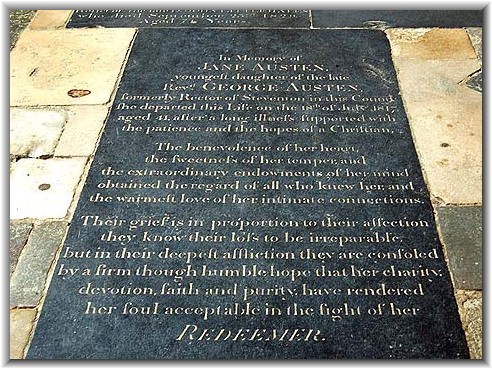 who died September 23rd 1829
Aged 74 Years
In Memory of
JANE AUSTEN,
youngeſt daughter of the late
Revd. GEORGE AUSTEN,
formerly Rector of Steventon in this County
ſhe departed this Life on the 18th of July 1817,
aged 41, after a long illneſs ſupported with
the patience and the hopes of a Chriſtian.
The benevolence of her heart,
the ſweetneſs of her temper, and
the extraordinary endowments of her mind
obtained the regard of all who knew her, and
the warmeſt love of her intimate connections.
Their grief is in proportion to their affection
they know their loſs to be irreparable,
but in their deepeſt affliction they are conſoled
by a firm though humble hope that her charity,
devotion, faith and purity, have rendered
her ſoul acceptable in the ſight of her
REDEEMER.